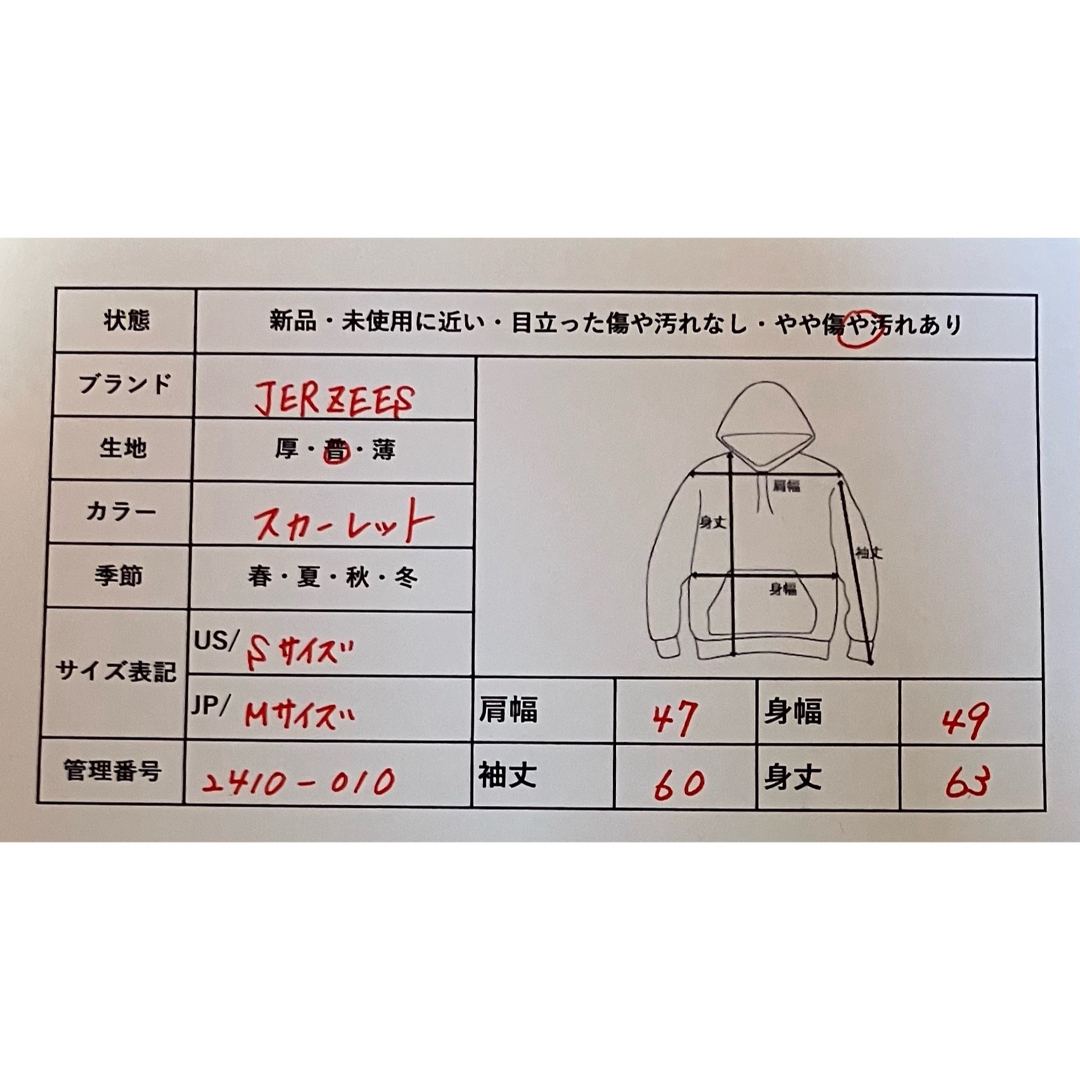 状態 新品・未使用に近い・目立った傷や汚れなし・やや傷や汚れあり
ブランド JERZEES
生地 厚・普・薄
カラー スカーレット
季節 春・夏・秋・冬
サイズ表記
US/ Sサイズ
JP/ Mサイズ
管理番号 2410-010
肩幅
身丈
袖丈
身幅
肩幅 47 身幅 49
袖丈 60 身丈 63